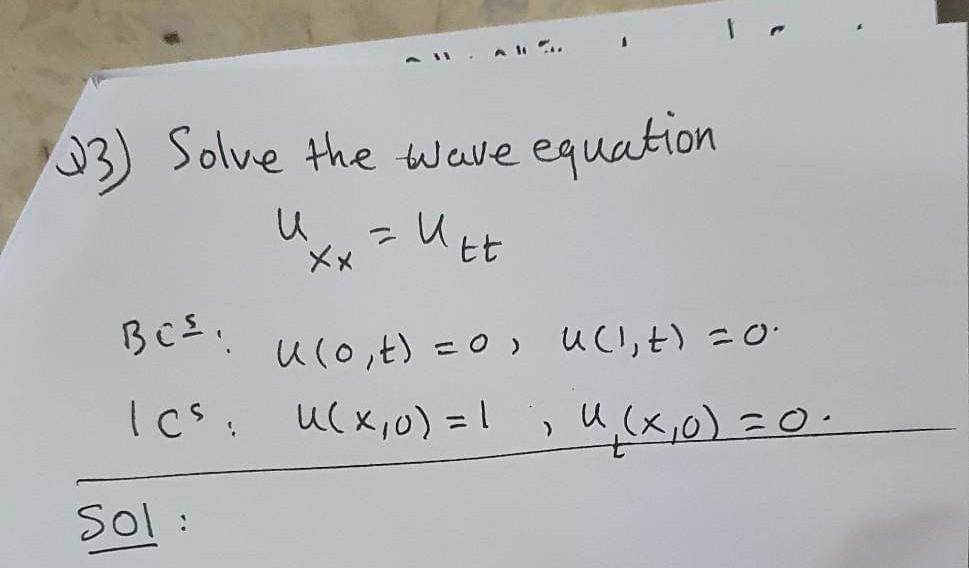 Q3) Solve the wave equation
u_xx = u_tt
BCs: u(0,t) = 0, u(1,t) = 0.
ICs: u(x,0) = 1, u_t(x,0) = 0.
Sol: